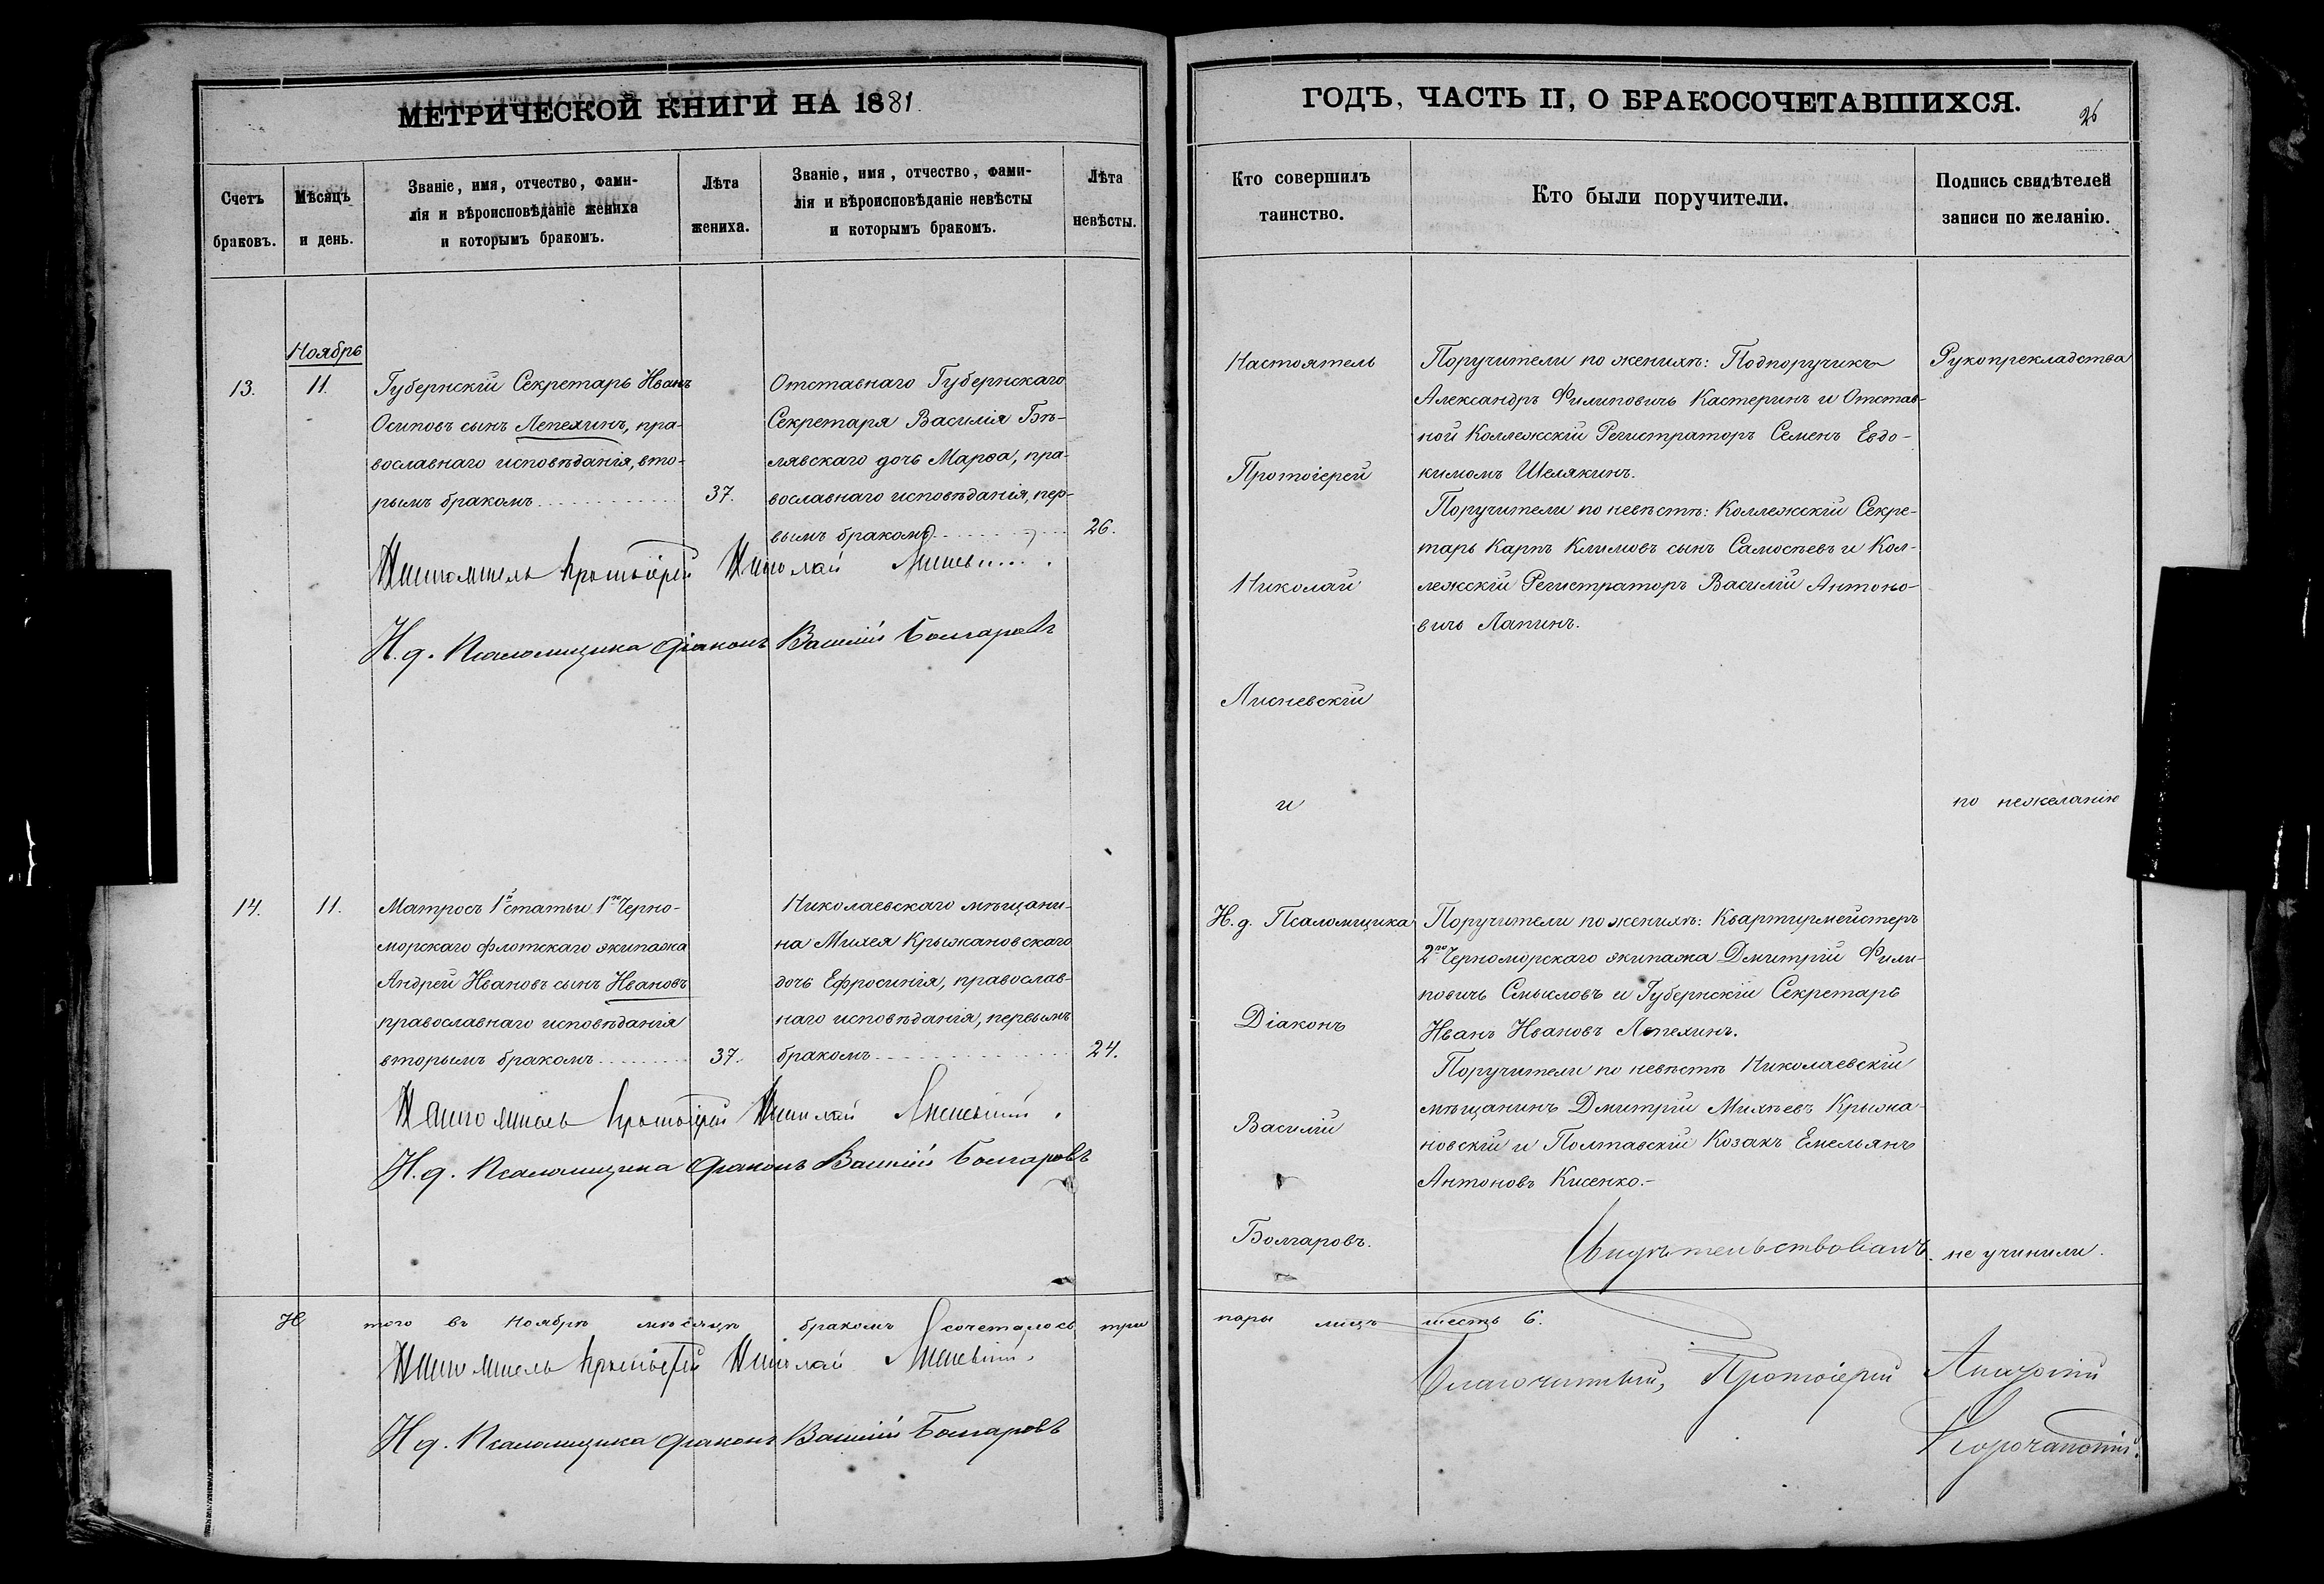 МЕТРИЧЕСКОЙ КНИГИ НА 1881.
Счетъ браковъ.
Мѣсяцъ и день.
Званіе, имя, отчество, фами-
лія и вѣроисповѣданіе жениха
и которымъ бракомъ.
Лѣта
жениха.
Званіе, имя, отчество, фами-
лія и вѣроисповѣданіе невѣсты
и которымъ бракомъ.
Лѣта
невѣсты.
Ноябрь
13.
11.
Губернскій Секретарь Иванъ
Осиповъ сынъ Лепехинъ, пра-
вославнаго исповѣданія, вто-
рымъ бракомъ
37.
Отставнаго Губернскаго
Секретаря Василія Бѣ-
лявскаго дочь Марѳа, пра-
вославнаго исповѣданія, пер-
вымъ бракомъ
26.
Настоятель Протоіерей Николай Лисневскій.
И. д. Псаломщика Діаконъ Василій Болгаровъ
14.
11.
Матросъ 1й статьи 1го Черно-
морскаго флотскаго экипажа
Андрей Ивановъ сынъ Ивановъ
православнаго исповѣданія
вторымъ бракомъ
37.
Николаевскаго мѣщани-
на Михея Крыжановскаго
дочь Ефросинія, православ-
наго исповѣданія, первымъ
бракомъ
24.
Настоятель Протоіерей Николай Лисневскій.
И. д. Псаломщика Діаконъ Василій Болгаровъ
И того въ Ноябрѣ мѣсяцѣ бракомъ сочеталось три
Настоятель Протоіерей Николай Лисневскій.
И д. Псаломщика Діаконъ Василій Болгаровъ
ГОДЪ, ЧАСТЬ II, О БРАКОСОЧЕТАВШИХСЯ.
26
Кто совершилъ
таинство.
Кто были поручители.
Подпись свидѣтелей
записи по желанію.
Настоятель
Протоіерей
Николай
Лисневскій
и
И. д. Псаломщика
Діаконъ
Василій
Болгаровъ.
Поручители по женихѣ: Подпоручикъ
Александръ Филиповичъ Кастеринъ и Отстав-
ной Коллежскій Регистраторъ Семенъ Евдо-
кимомъ Шелякинъ.
Поручители по невѣстѣ: Коллежскій Секре-
тарь Карпъ Климовъ сынъ Самосѣевъ и Кол-
лежскій Регистраторъ Василій Антоно-
вичъ Лапинъ.
Поручители по женихѣ: Квартирмейстеръ
2го Черноморскаго экипажа Дмитрій Фили-
повичъ Смысловъ и Губернскій Секретарь
Иванъ Ивановъ Лепехинъ.
Поручители по невѣстѣ Николаевскій
мѣщанинъ Дмитрій Михѣевъ Крыжа-
новскій и Полтавскій Козакъ Емельянъ
Антоновъ Кисенко.-
Рукоприкладства
по нежеланію
не учинили.
Свидѣтельствовалъ
пары лицъ шесть 6.
Благочинный, Протоіерей